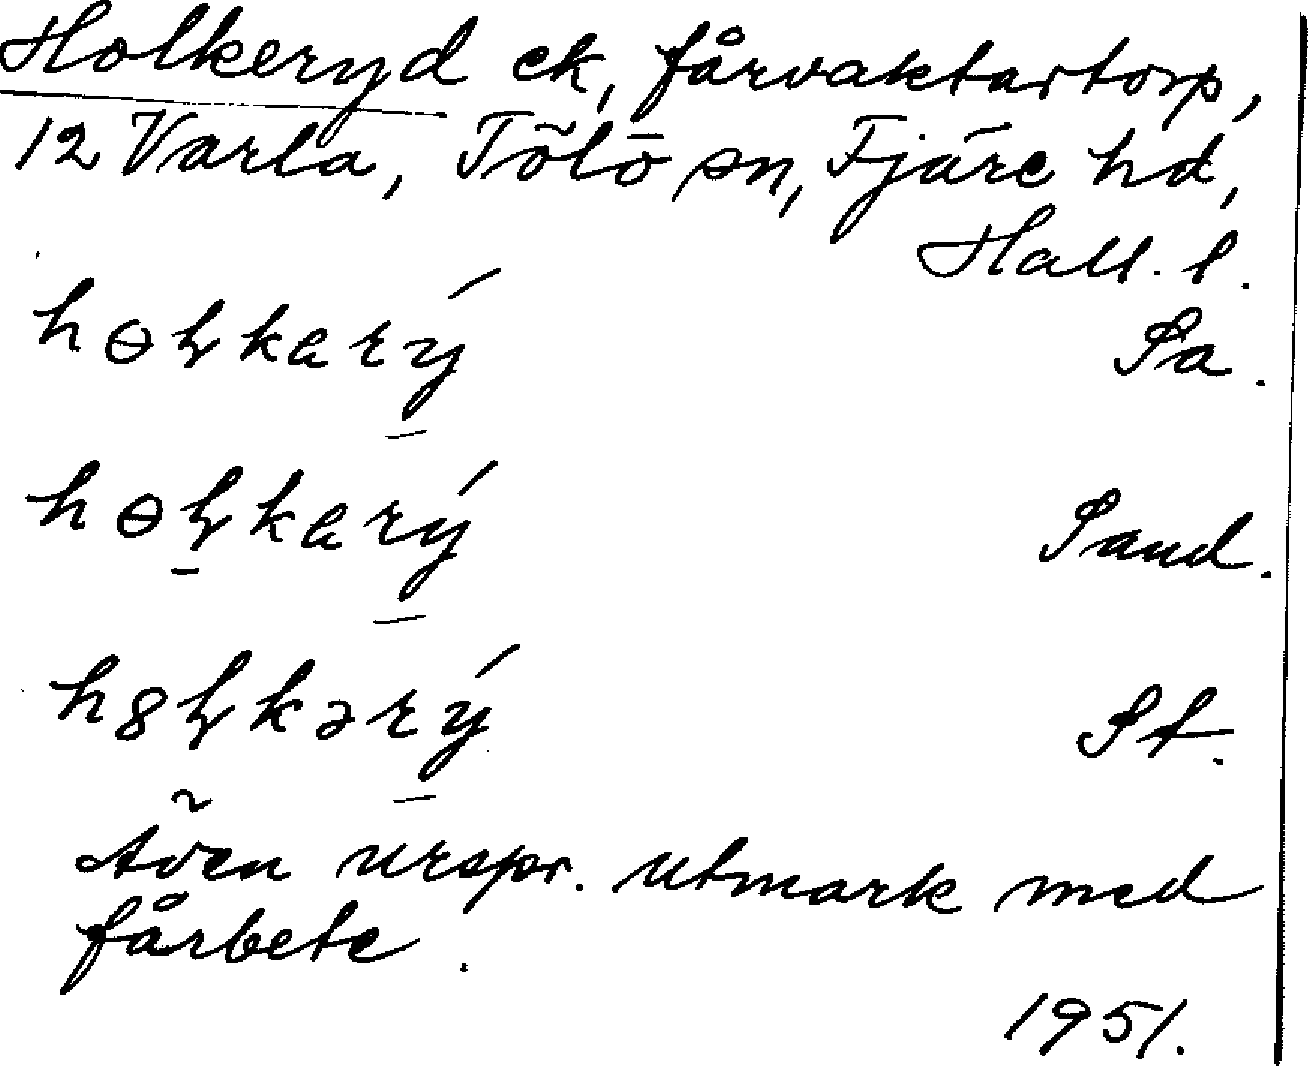 Holkeryd ek, fårvaktartorp,
12 Varla, Tölö sn, Fjäre hd,
Hall. l.
hɵɫkarý Sa.
hɵɫkarý Sand.
h8ɫkərý St.
Även urspr. utmark med
fårbete.
1951.